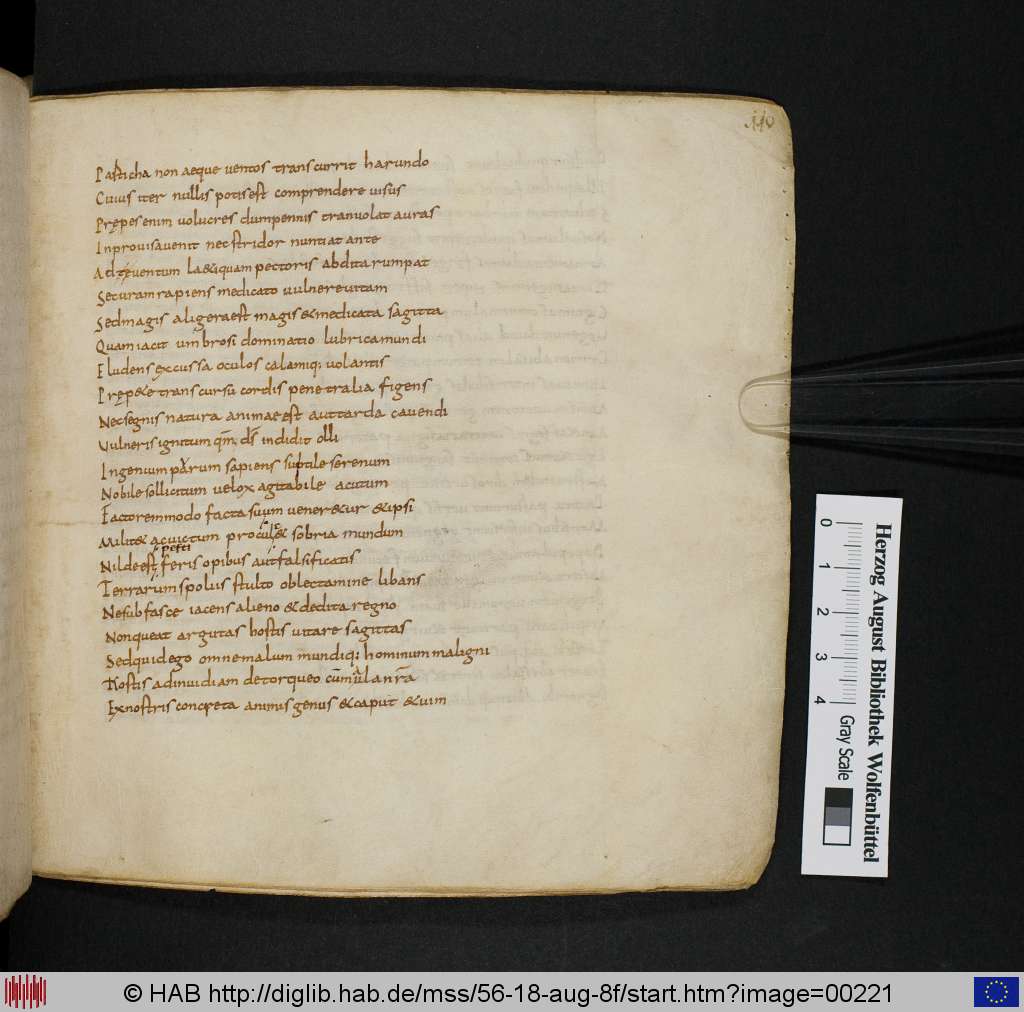 110
Parthicha non aeque ventos transcurrit harundo
Cuius iter nullis potis est comprendere uisus
Prępes enim uolucres dum pennis tranuolat auras
Inprouisa uenit nec stridor nuntiat ante
Aduentum laeti quam pectoris abdita rumpat
Securam rapiens medicato uulnere uitam
Sed magis aligera est magis & medicata sagitta
Quam iacit umbrosi dominatio lubrica mundi
Eludens excussa oculos calamiq; uolantis
Prępete transcursu cordis penetralia figens
Nec segnis natura animae est aut tarda cauendi
Vulneris ignitum qm̄ ds̄ indidit olli
Ingenium purum sapiens subtile serenum
Nobile sollicitum uelox agitabile acutum
Factorem modo facta suum ueneretur & ipsi
Milit& ac uictum proculc& sobria mundum
Nil de pestiferis opibus aut falsificatis
Terrarum spoliis stulto oblectamine libans
Ne sub fasce iacens alieno & dedita regno
Non queat argutas hostis uitare sagittas
Sed quid ego omne malum mundiq; hominum maligni
Hostis ad inuidiam detorqueo cum mala nr̄a
Ex nostris concreta animis genus & caput & uim
Herzog August Bibliothek Wolfenbüttel
0 1 2 3 4
Gray Scale
© HAB http://diglib.hab.de/mss/56-18-aug-8f/start.htm?image=00221